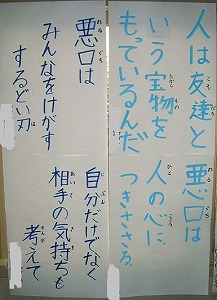 人は友達と
いう宝物を
もっているんだ
悪口は
人の心に、
つきささる。
悪口は
みんなをけがす
するどい刃
自分だけでなく
相手の気持ちも
考えて